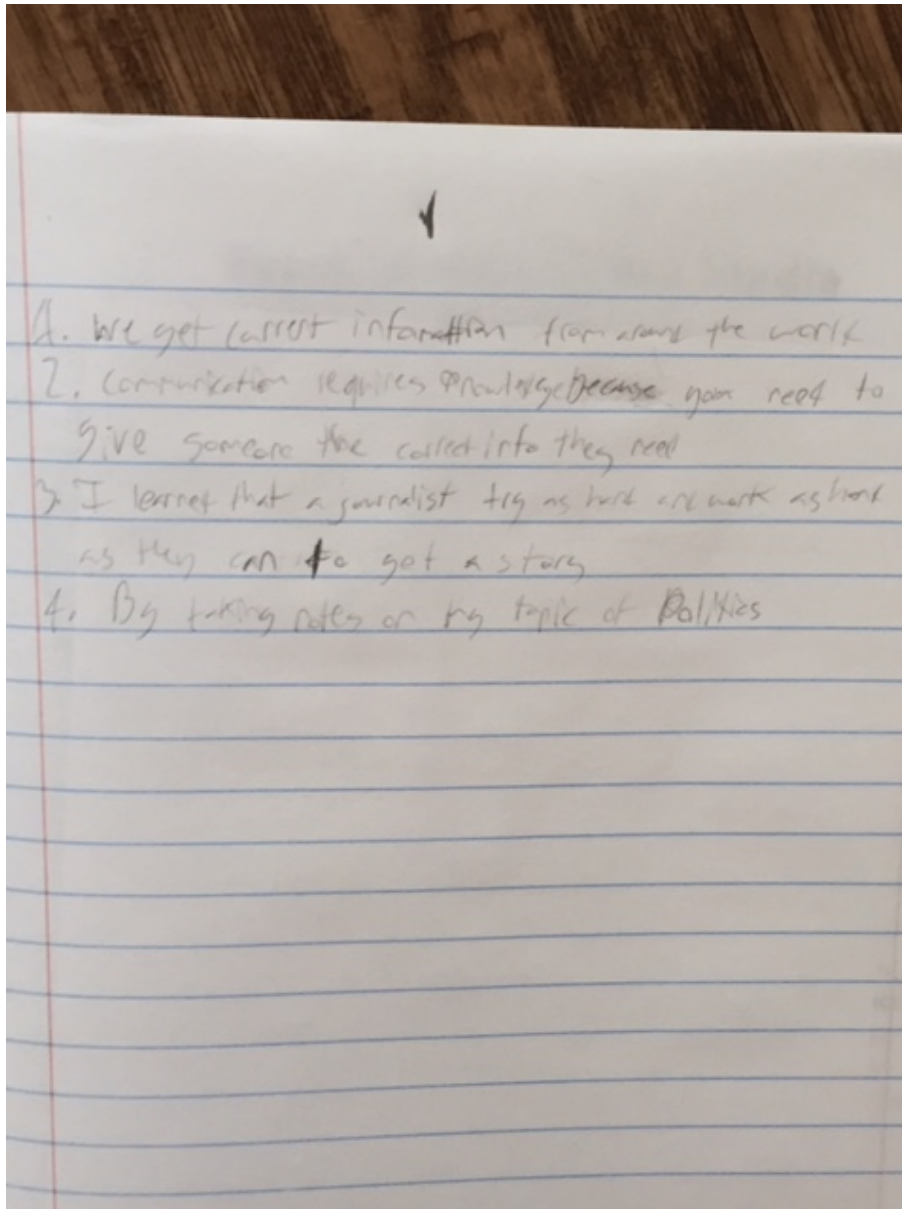 1. We get currest infomation from around the world
2. Communication requires knowledge because you need to
give someone the correct info they need
3. I learned that a journalist try as hard and work as hard
as they can to get a story
4. By taking notes on my topic of Politics